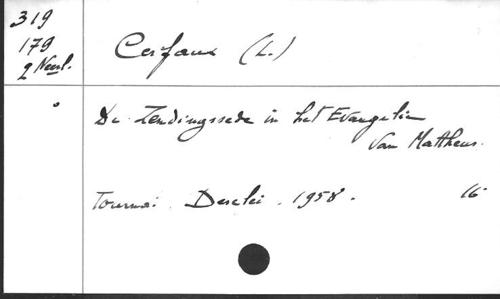 319
179
2 Neerl.
Cerfaux (L.)
De Zendingsrede in het Evangelie
Van Mattheus.
Tournai. Desclée. 1958. 16